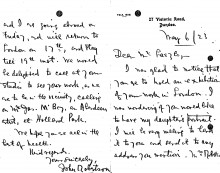 27 Victoria Road,
Dundee.
May 6/23
Dear Mr
I am glad to notice that
you are to hold an exhibition
of your work in London. I
am wondering if you would like
to have my daughter's portrait.
I will be very willing to lend
it to you and send it to any
address you mention.
and I am going abroad on
Friday, and will return to
London on 17th, and stay
till 19th inst. We would
be delighted to call at your
studio to see your work, as
we are to be in the vicinity, calling
on Mr Jas. M. Boy, an Aberdeen
artist, at Holland Park.
We hope you are all in the
best of health.
Kind regards,
Yours sincerely,
John Robertson